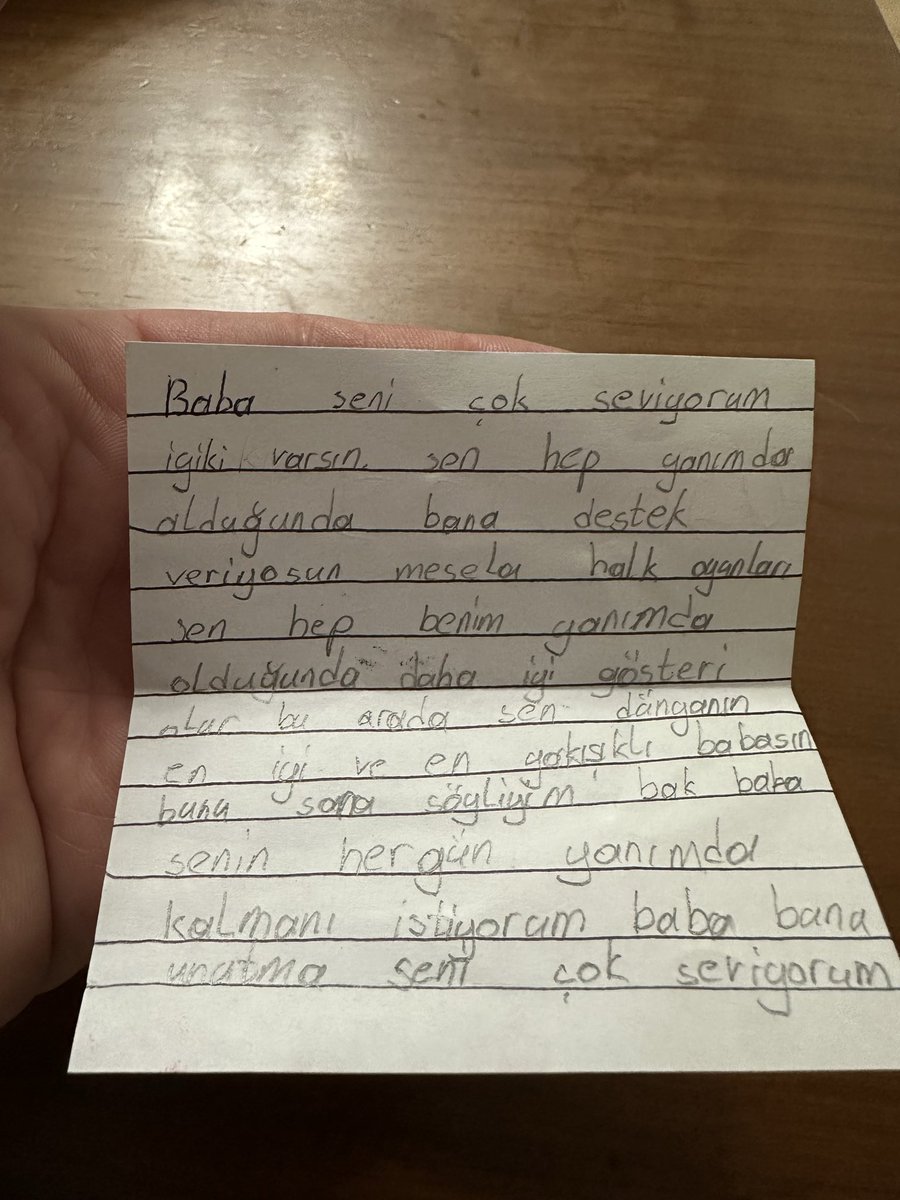 Baba seni çok seviyorum
iyiki varsın. sen hep yanımda
olduğunda bana destek
veriyosun mesela halk oyunları
sen hep benim yanımda
olduğunda daha iyi gösteri
olur bu arada sen dünyanın
en iyi ve en yakışıklı babasın
bunu sana söyliyim bak baba
senin hergün yanımda
kalmanı istiyorum baba bunu
unutma seni çok seviyorum